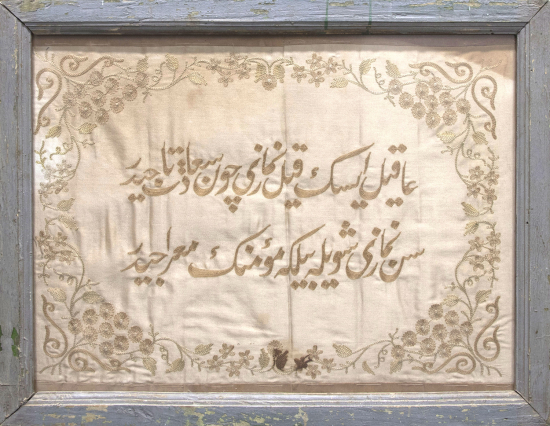 عاقیل ایسك قیل نمازی چون سعادت تاجیدر
سن نمازی شویله بیلکه مؤمنك معراجیدر